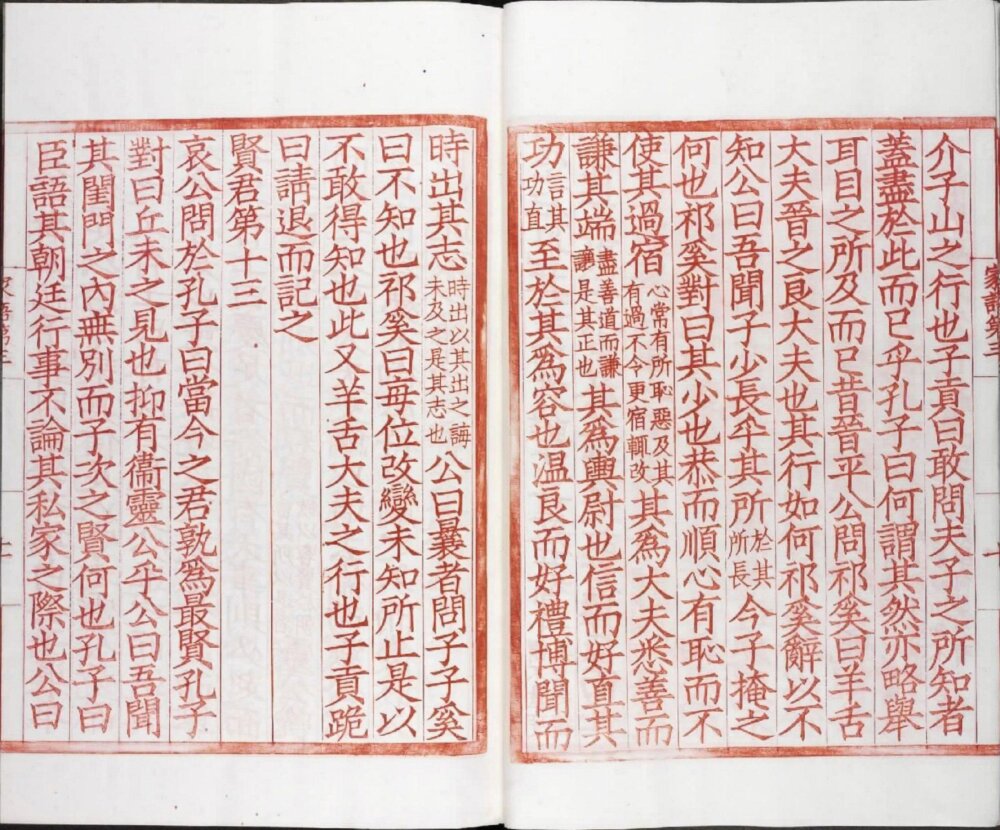 介子山之行也子貢曰敢問夫子之所知者
蓋盡於此而已乎孔子曰何謂其然亦略舉
耳目之所及而已昔晉平公問祁奚曰羊舌
大夫晉之良大夫也其行如何祁奚辭以不
知公曰吾聞子少長乎其所於其所長今子掩之
何也祁奚對曰其少也恭而順心有恥而不
使其過宿心常有所恥惡及其有過不令更宿輒改其為大夫悉善而
謙其端盡善道而謙讓是其正也其為輿尉也信而好直其
功言其功直至於其為容也温良而好禮博聞而
時出其志時出以其出之誨未及之是其志也公曰曩者問子子奚
曰不知也祁奚曰每位改變未知所止是以
不敢得知也此又羊舌大夫之行也子貢跪
曰請退而記之
賢君第十三
哀公問於孔子曰當今之君孰為最賢孔子
對曰丘未之見也抑有衞靈公乎公曰吾聞
其閨門之內無別而子次之賢何也孔子曰
臣語其朝廷行事不論其私家之際也公曰